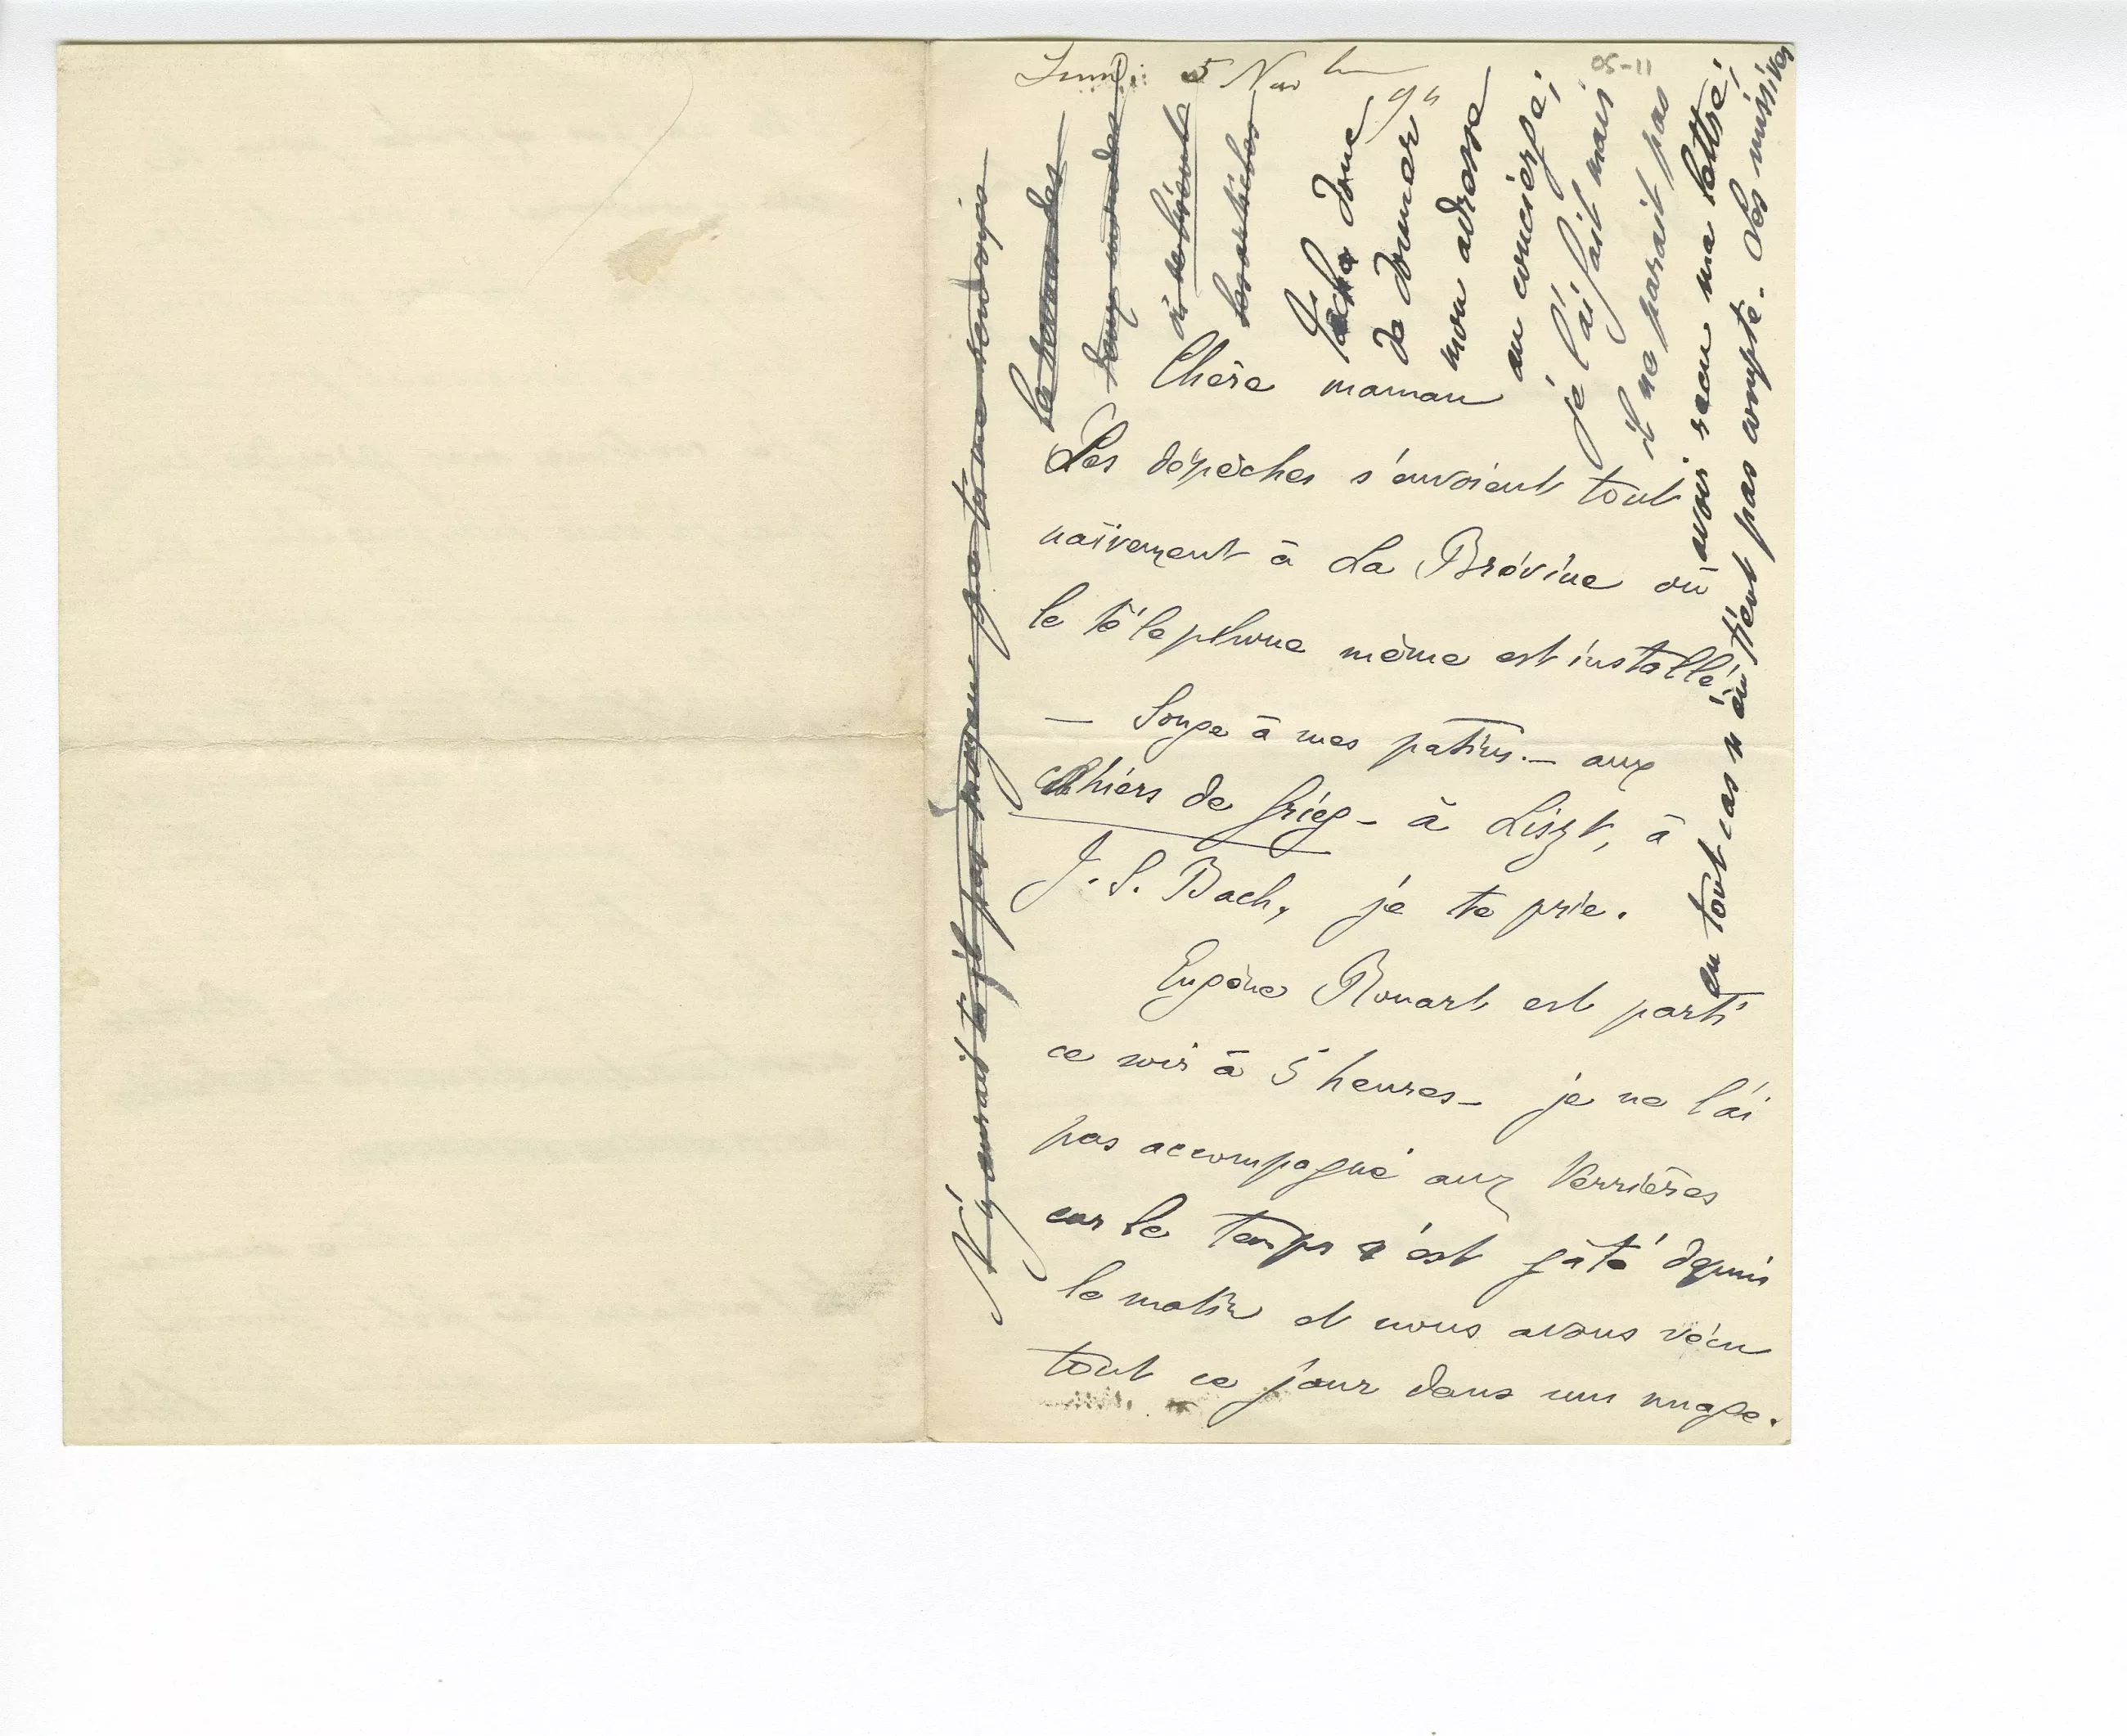 Lundi 5 Nov bre 94
05-11
Chère maman
Les dépêches s'envoient tout
naïvement à La Brévine où
le téléphone même est installé.
— Songe à mes patins. — aux
cahiers de Grieg — à Liszt, à
J. S. Bach, je te prie.
Eugène Rouart est parti
ce soir à 5 heures — je ne l'ai
pas accompagné aux Verrières
car le temps s'est gâté depuis
le matin et nous avons vécu
tout ce jour dans un nuage.
N'y aurait-il pas moyen que tu me renvoies
la revue des
deux mondes
où se trouve
les articles
Tâche donc
de donner
mon adresse
au concierge;
je l'ai fait mais
il ne parait pas
avoir reçu ma lettre;
en tout cas n'en tient pas compte. Les missives